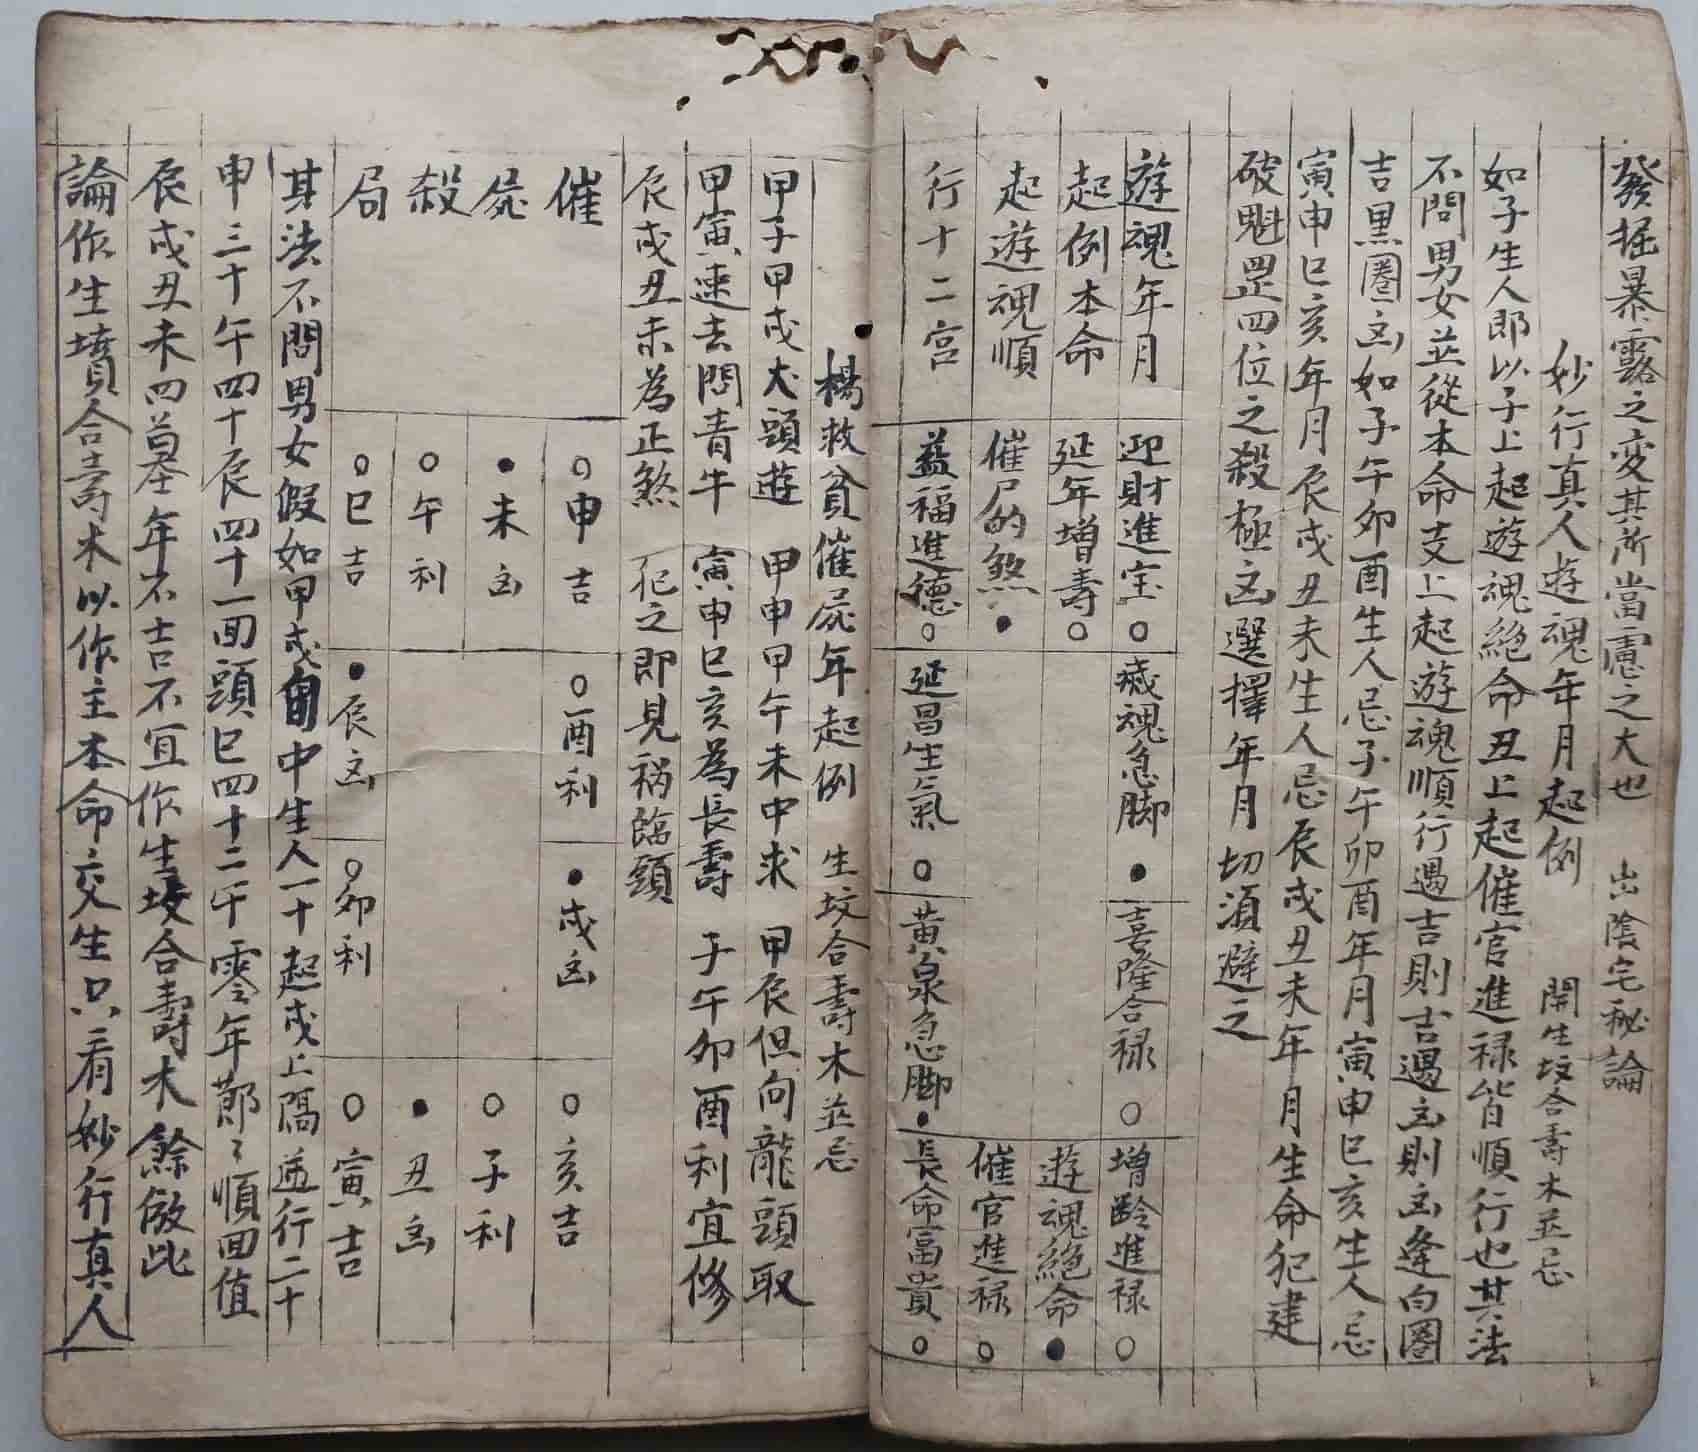 發掘暴露之变其所當慮之大也　出陰宅秘論
妙行真人遊魂年月起例　開生坟合壽木並忌
如子生人即以子上起遊魂絕命丑上起催官進禄皆順行也其法
不問男女並從本命支上起遊魂順行遇吉則吉遇凶則凶逢白圈
吉黑圈凶如子午卯酉生人忌子午卯酉年月寅申巳亥生人忌
寅申巳亥年月辰戌丑未生人忌辰戌丑未年月生命犯建
破魁罡四位之殺極凶選擇年月切須避之
遊魂年月
起例本命
起遊魂順
行十二宫
迎財進宝○
延年增壽○
催尸的煞●
益福進德○
魂急脚●
延昌生氣○
喜隆合禄○
黄泉急脚●
增齡進禄○
遊魂絕命●
催官進禄○
長命富貴○
楊救貧催屍年起例　生坟合壽木並忌
甲子甲戌犬頭遊　甲申甲午未中求　甲辰但向龍頭取
甲寅速去問青牛　寅申巳亥為長壽　子午卯酉利宜修
辰戌丑未為正煞　犯之即見禍臨頭
催
屍
殺
局
○申吉
●未凶
○午利
○巳吉
○酉利
●辰凶
●戌凶
○卯利
○亥吉
○子利
●丑凶
○寅吉
其法不問男女假如甲戌旬中生人一十起戌上隔逆行二十
申三十午四十辰四十一回頭巳四十二午零年節〻順回值
辰戌丑未四墓年不吉不宜作生坟合壽木餘倣此
論作生墳合壽木以作主本命交生只看妙行真人